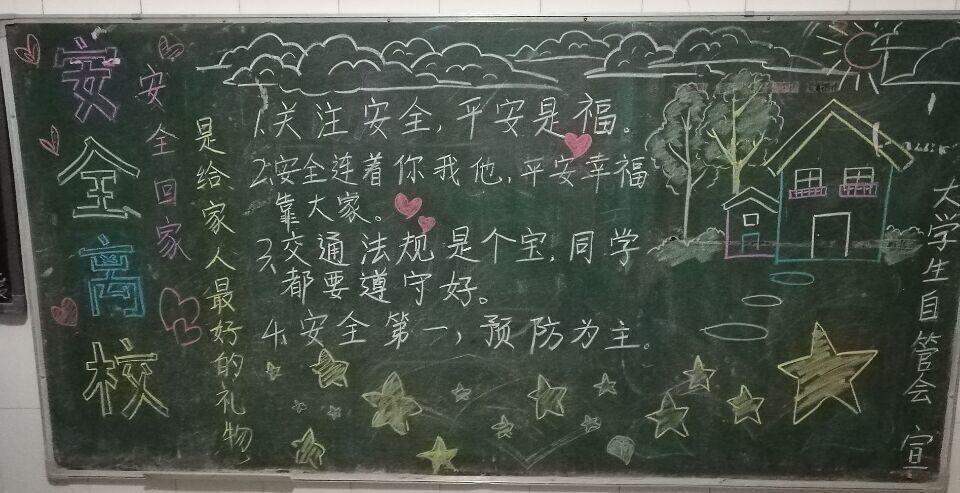 安全离校
安全回家
是给家人最好的礼物
1.关注安全,平安是福。
2.安全连着你我他,平安幸福
靠大家。
3、交通法规是个宝,同学
都要遵守好。
4.安全第一,预防为主。
大学生自管会 宣